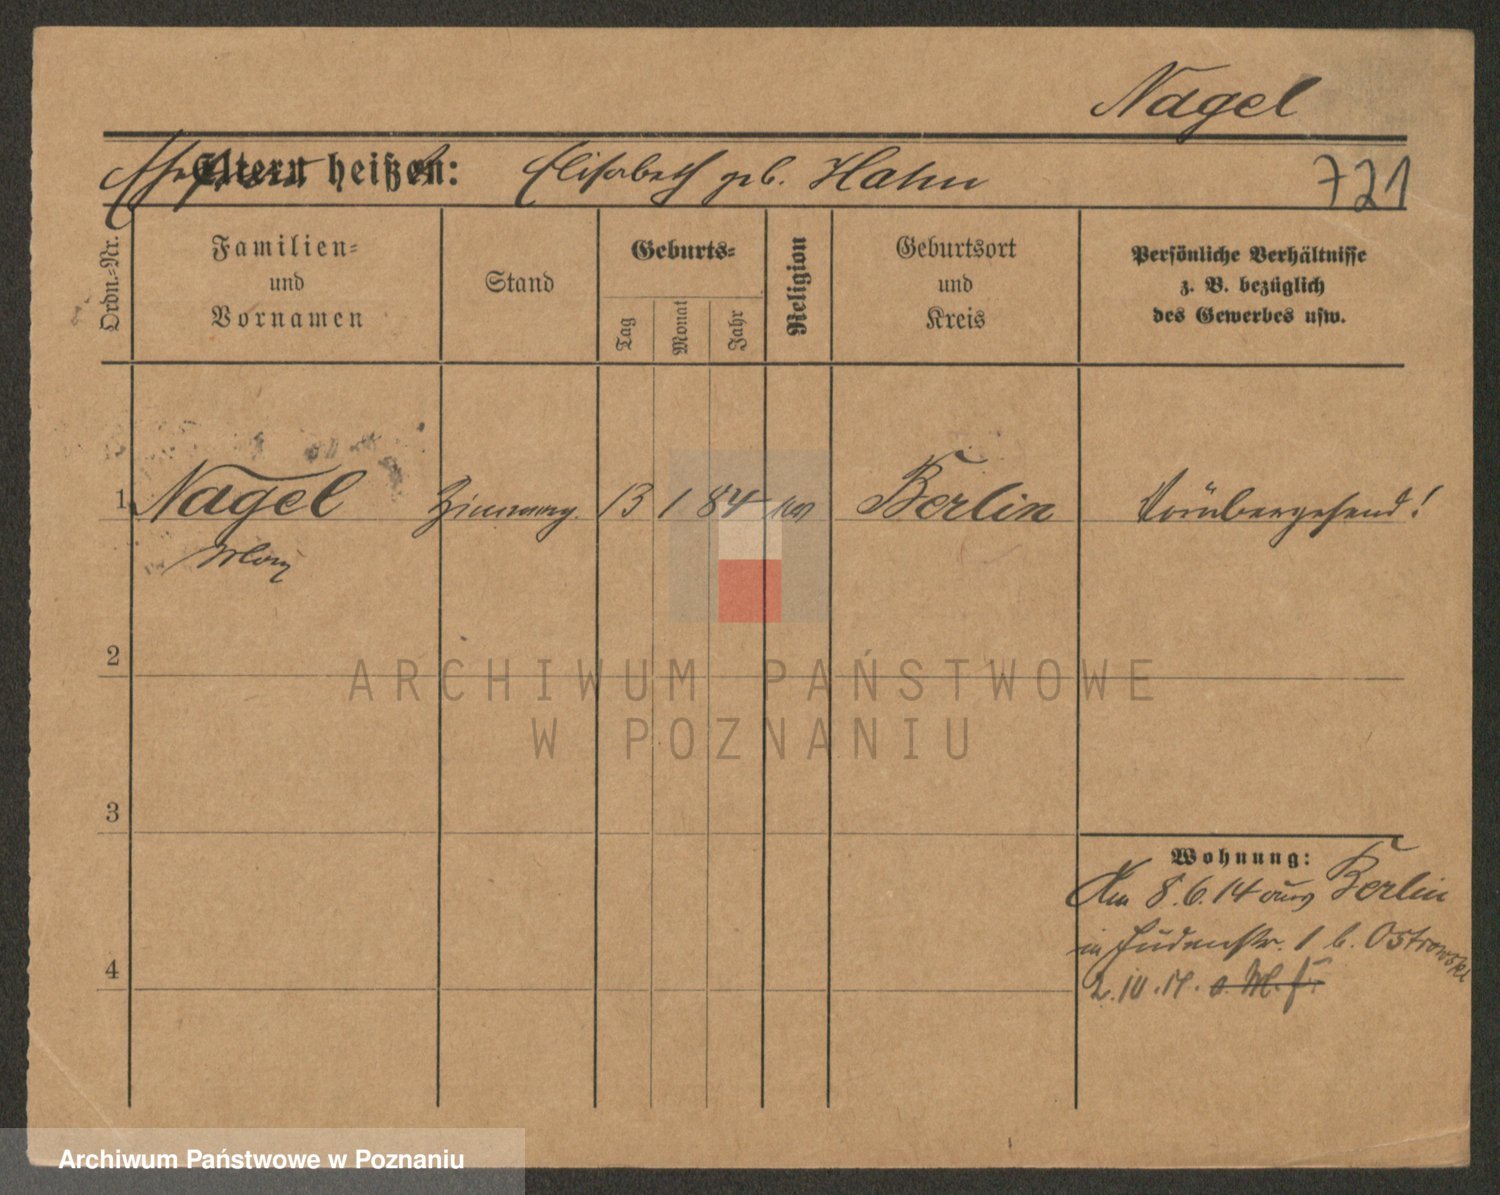 Nagel
Eltern heißen: Elisabeth geb. Hahn
721
Ordn.-Nr.
Familien-
und
Vornamen
Stand
Geburts-
Tag
Monat
Jahr
Religion
Geburtsort
und
Kreis
Persönliche Verhältnisse
z. B. bezüglich
des Gewerbes usw.
1 Nagel 13 1 84 Berlin Vorübergehend!
Max
2
3
4
Wohnung:
Am 8.6.14 aus Berlin
in Judenstr. 1 b. Ostrowski
ARCHIWUM PAŃSTWOWE
W POZNANIU
Archiwum Państwowe w Poznaniu